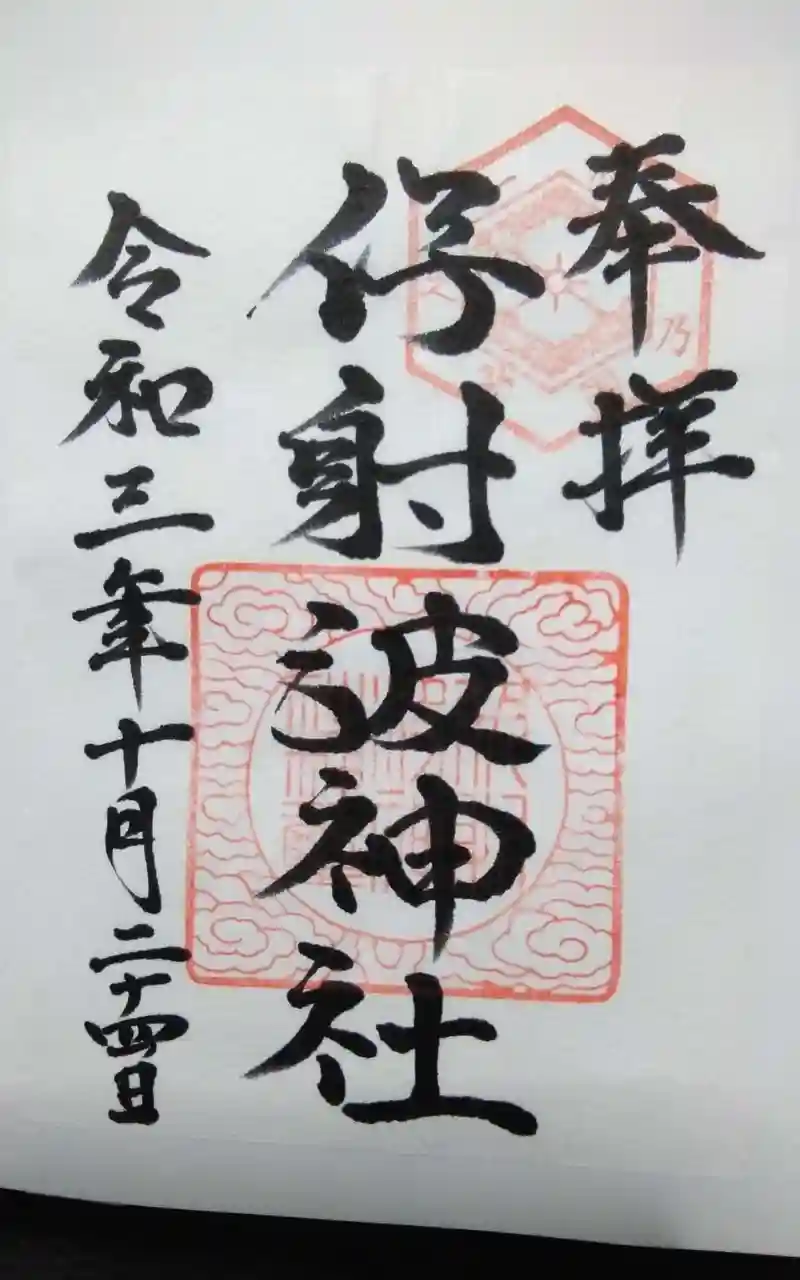 奉拝
伊射波神社
令和三年十月二十四日